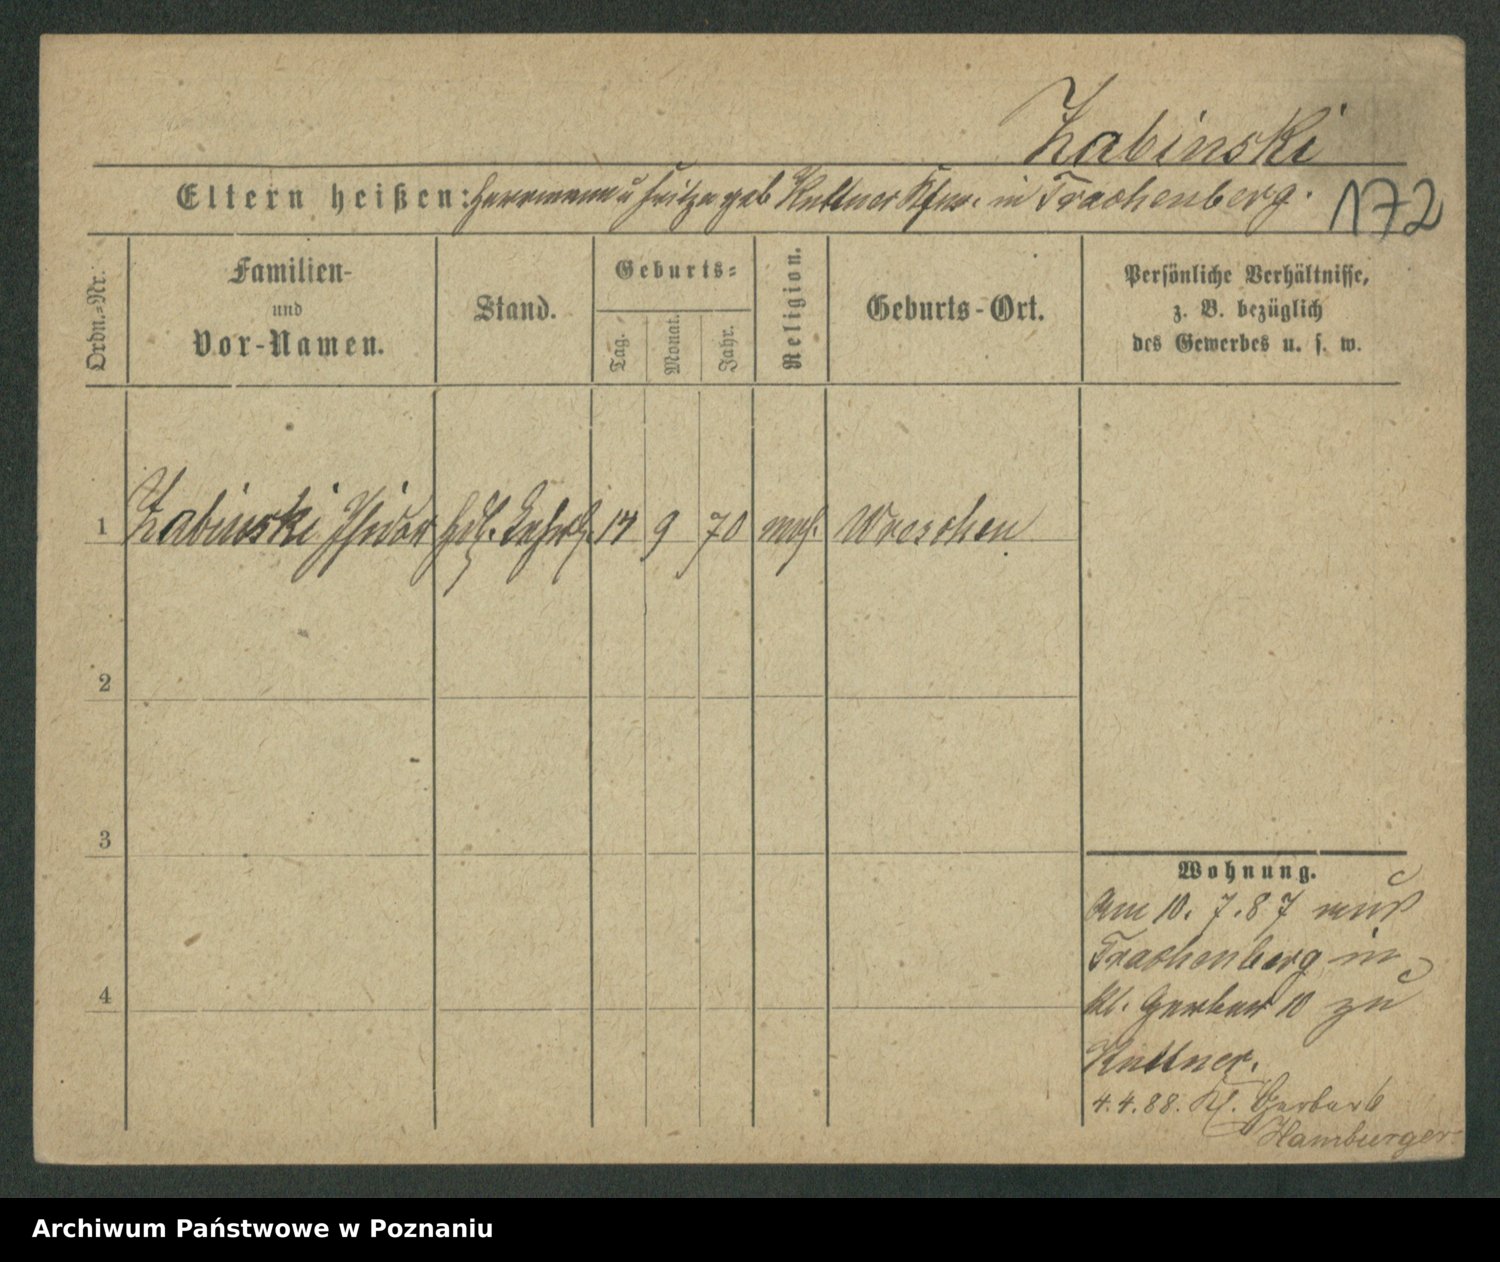 Zabinski
Eltern heißen: Herrmann u geb Kuttner Kfm. in Trachenberg.
172
Ordn.-Nr.
Familien-
und
Vor-Namen.
Stand.
Geburts-
Tag.
Monat.
Jahr.
Religion.
Geburts-Ort.
Persönliche Verhältnisse,
z. B. bezüglich
des Gewerbes u. s. w.
1 Zabinski Isidor Hdl. Lehrl. 17 9 70 mos. Wreschen
2
3
4
Wohnung.
Am 10. 7. 87 aus
Trachenberg in
Kl. Gerber 10 zu
Kuttner.
4. 4. 88. Kl. Gerber 6
Hamburger
Archiwum Państwowe w Poznaniu